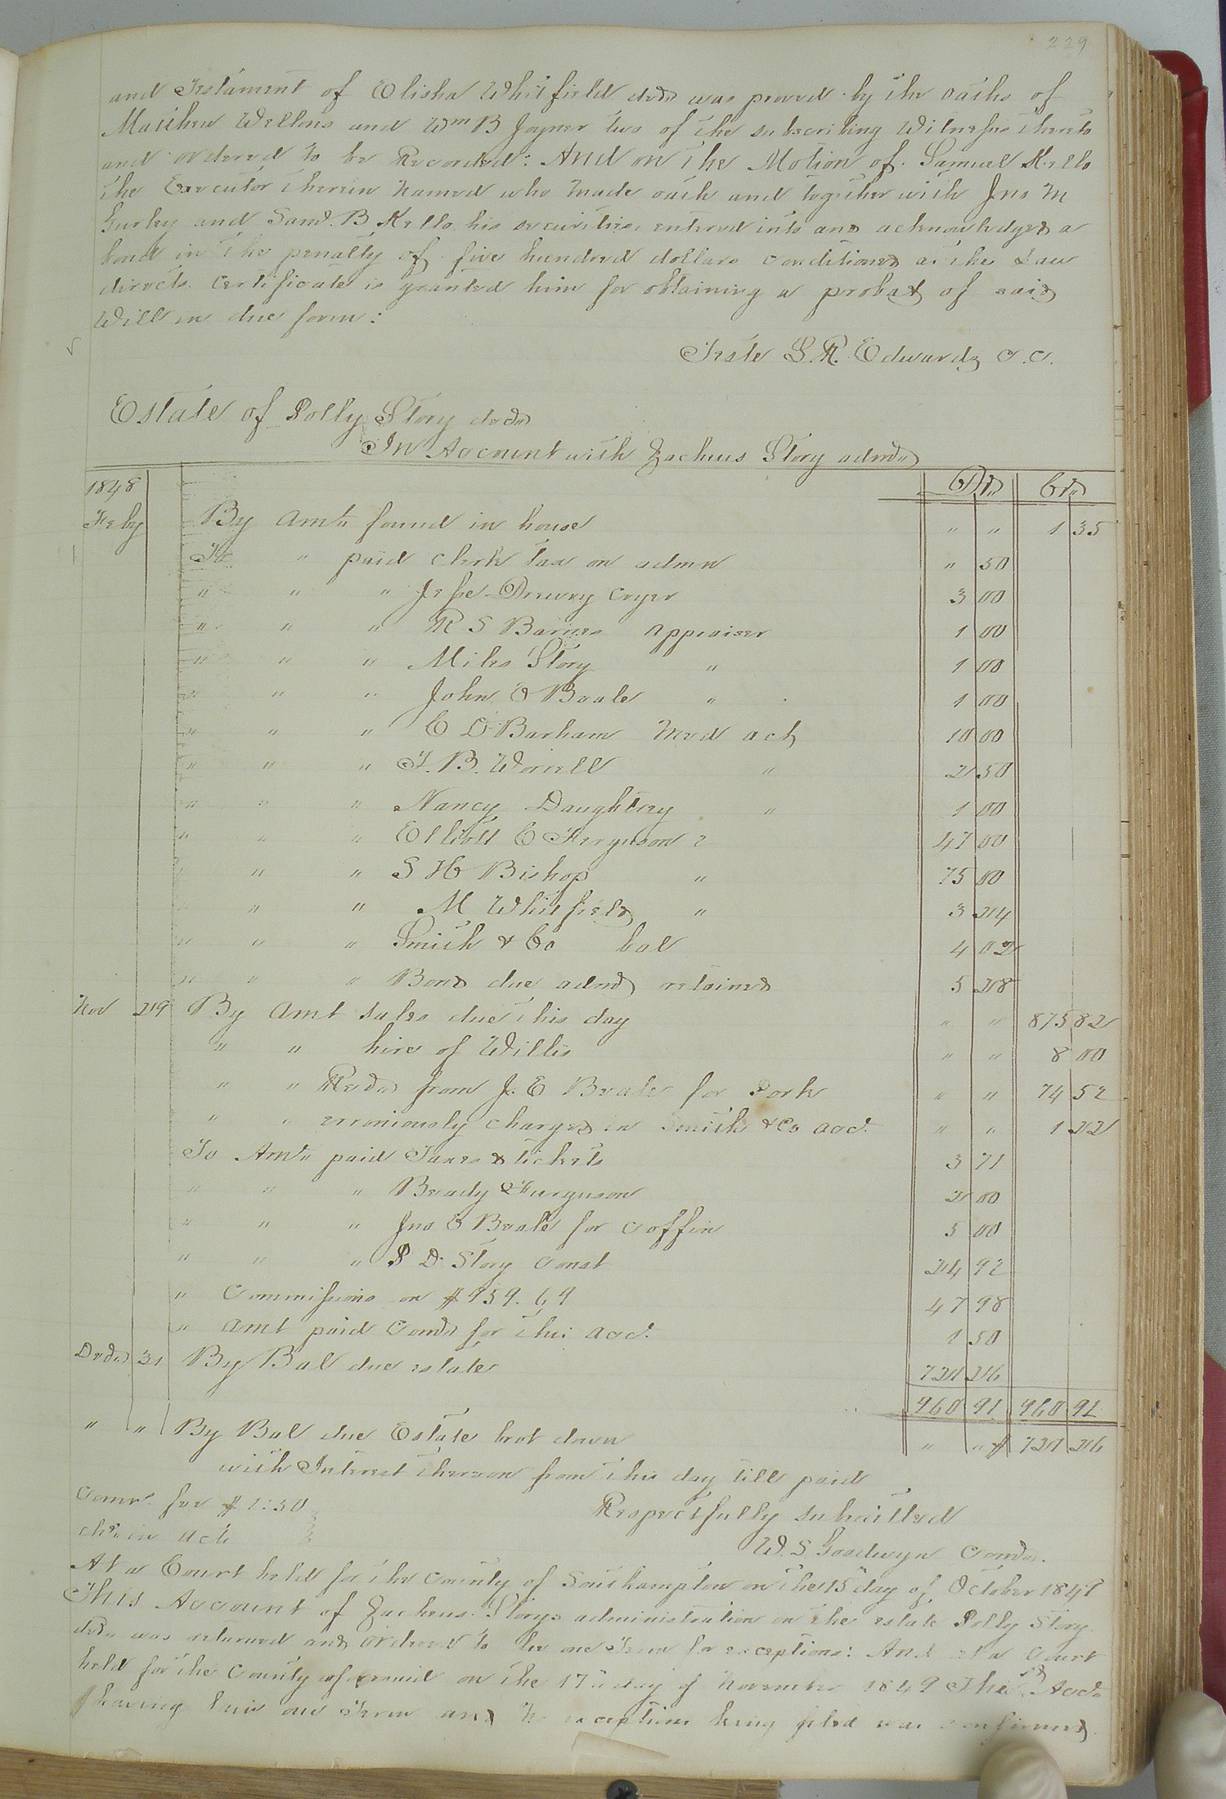 229
and Testament of Elisha Whitfield decd was proved by the oaths of
Matthew Wellons and Wm B Joyner two of the subscribing Witnesses thereto
and ordered to be Recorded: And on the Motion of Samuel Kello
the Executor therein named who made oath and together with Jno M
Gurley and Saml. B Kello his securities entered into and acknowledged a
bond in the penalty of five hundred dollars conditioned as the Law
directs Certificate is granted him for obtaining a probat of said
Will in due form:
Teste L. R. Edwards C.C.
Estate of Polly Story decd
In Account with Zacheus Story admr
1848 Dr. Cr.
Feby By Amt. found in house " " 1 35
To " paid clerk tax on admn " 50
" " " Jesse Drewry cryer 3 00
" " " R S Barnes Appraiser 1 00
" " " Miles Story " 1 00
" " " John E Beale " 1 00
" " " C D Barham Med act 10 00
" " " T. B. Worrell " 2 50
" " " Nancy Daughtrey " 1 00
" " " Elliott C Ferguson 2 47 00
" " " S H Bishop " 75 00
" " " M Whitfield " 3 24
" " " Smith & Co bal 4 02
" " " Bond due admr retained 5 28
Nov 29 By Amt sales due this day " " 875 82
" " hire of Willis " " 8 00
" " Recd. from J. E Beale for Pork " " 74 52
" " erroniously charged in Smith & Co acct. " " 1 22
To Amt. paid Taxes & tickets 3 71
" " " Beady Ferguson 2 00
" " " Jno E Beale for coffin 5 00
" " " P D. Story const 24 92
" Commissions on $959.69 47 98
" Amt paid Comr for this acct. 1 50
Decr. 31 By Bal due estate 720 26
960 91 960 91
" " By Bal due Estate brot down " " $ 720 26
with Interest thereon from this day till paid
Comr. fee $1:50
chd. in act
Respectfully submitted
W. S Goodwyn Comr.
At a Court held for the County of Southampton on the 15 day of October 1849
This Account of Zacheus Storys administration on the estate Polly Story
decd was returned and ordered to lie one Term for exceptions: And at a Court
held for the County aforesaid on the 17th day of November 1849 The sd Acct.
having lain one Term and no exceptions being filed was confirmed